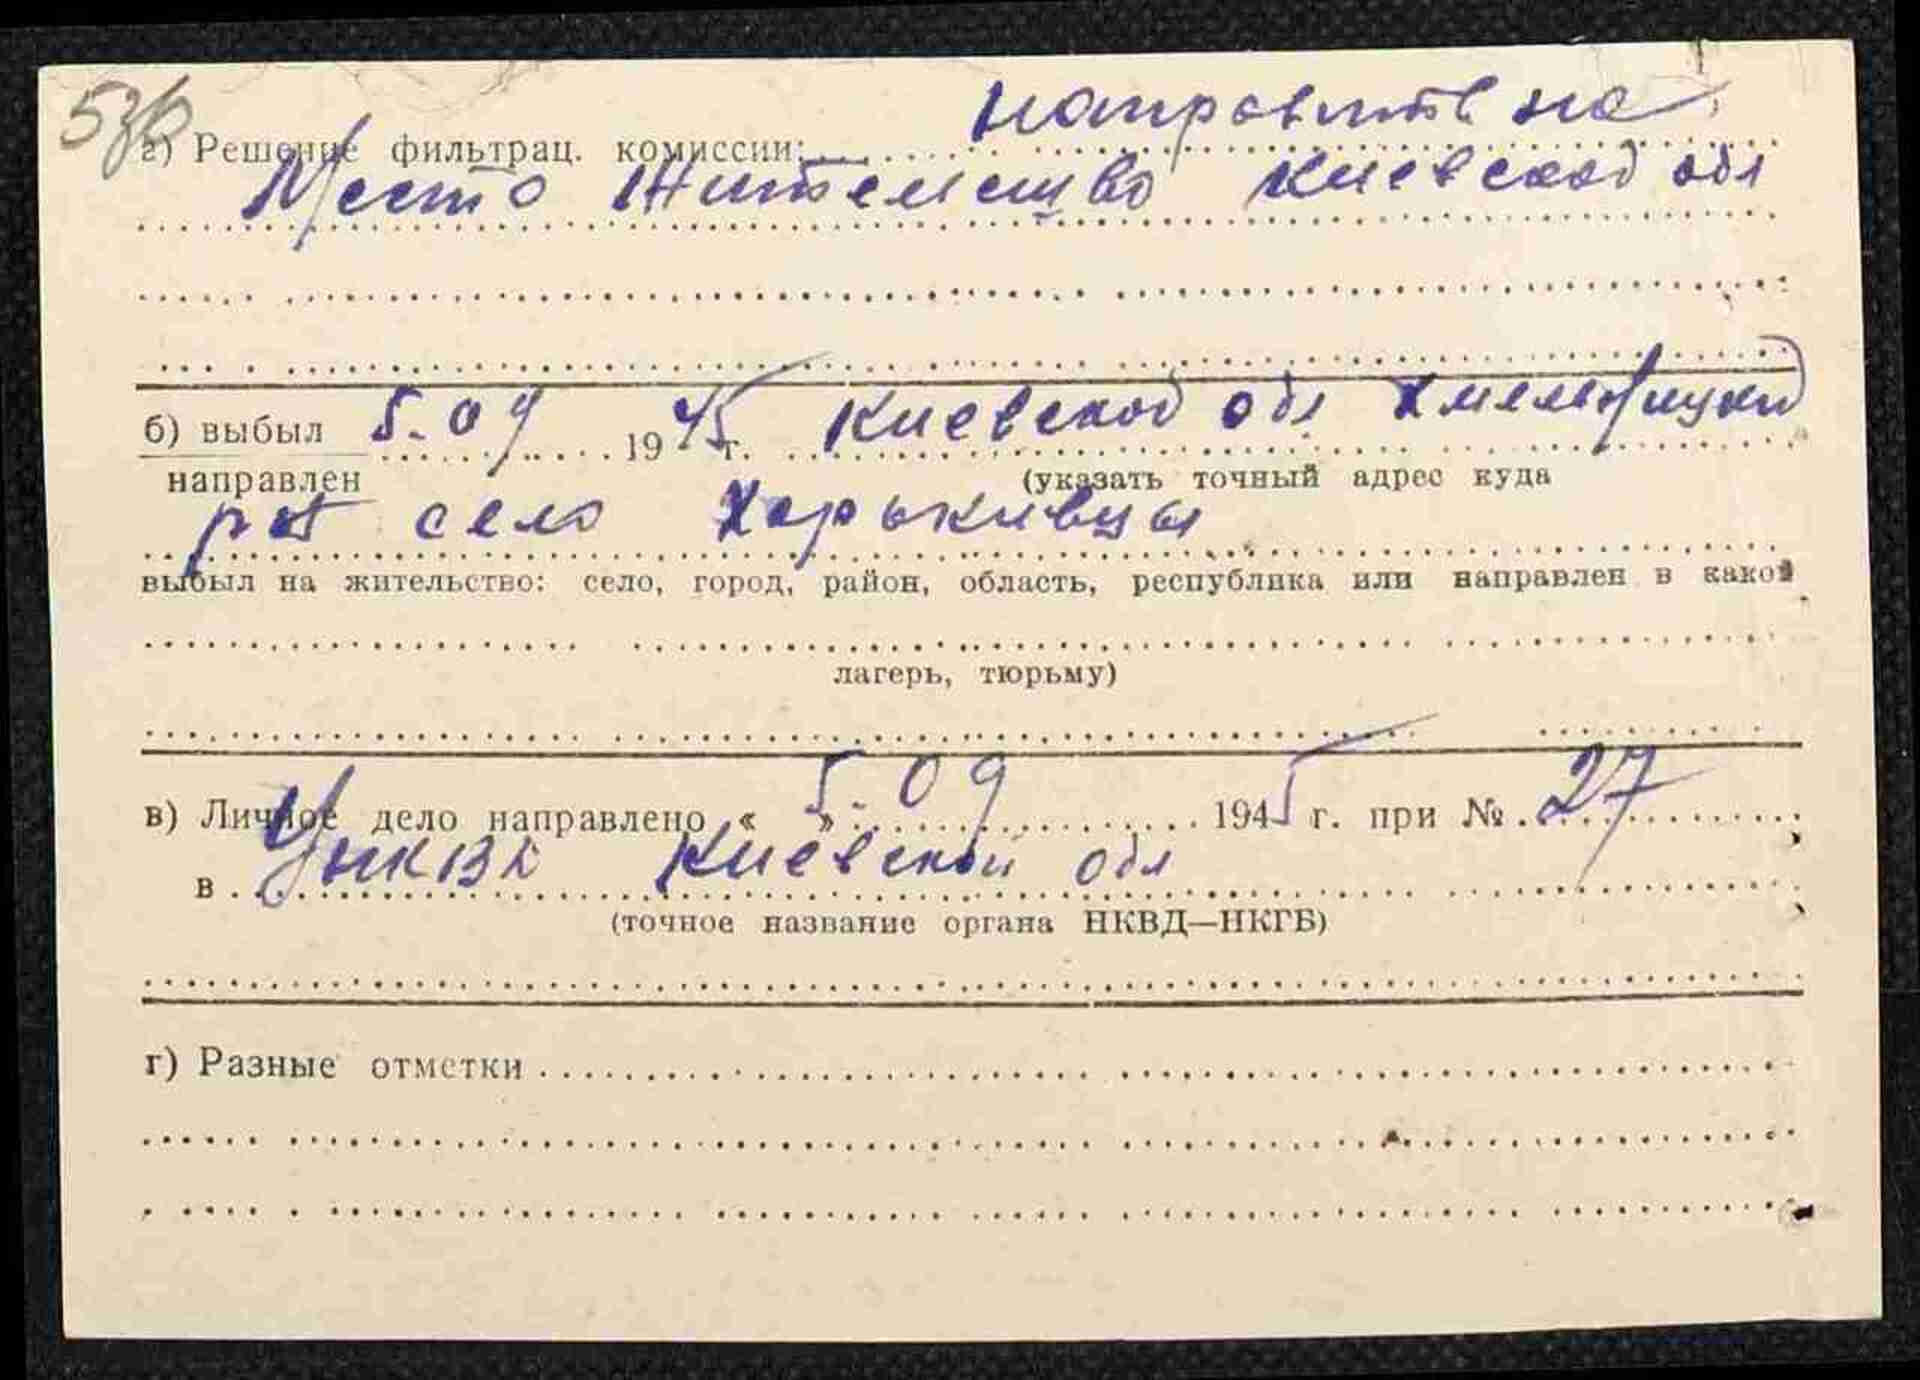 направить на
а) Решение фильтрац. комиссии:
Место Жителство Киевской обл
б) выбыл 5.09 1945 г. Киевской обл Хмельницкий
направлен (указать точный адрес куда
рн село Харькивцы
выбыл на жительство: село, город, район, область, республика или направлен в какой
лагерь, тюрьму)
в) Личное дело направлено « » 5.09 1945 г. при № 27
в Киевской обл
(точное название органа НКВД—НКГБ)
г) Разные отметки